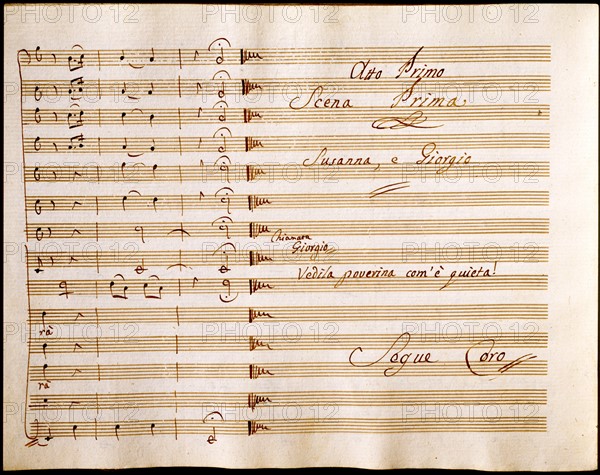 Atto Primo
Scena Prima
Susanna, e Giorgio
Giorgio
Vedila poverina com'è quieta!
rà
rà
Segue Coro